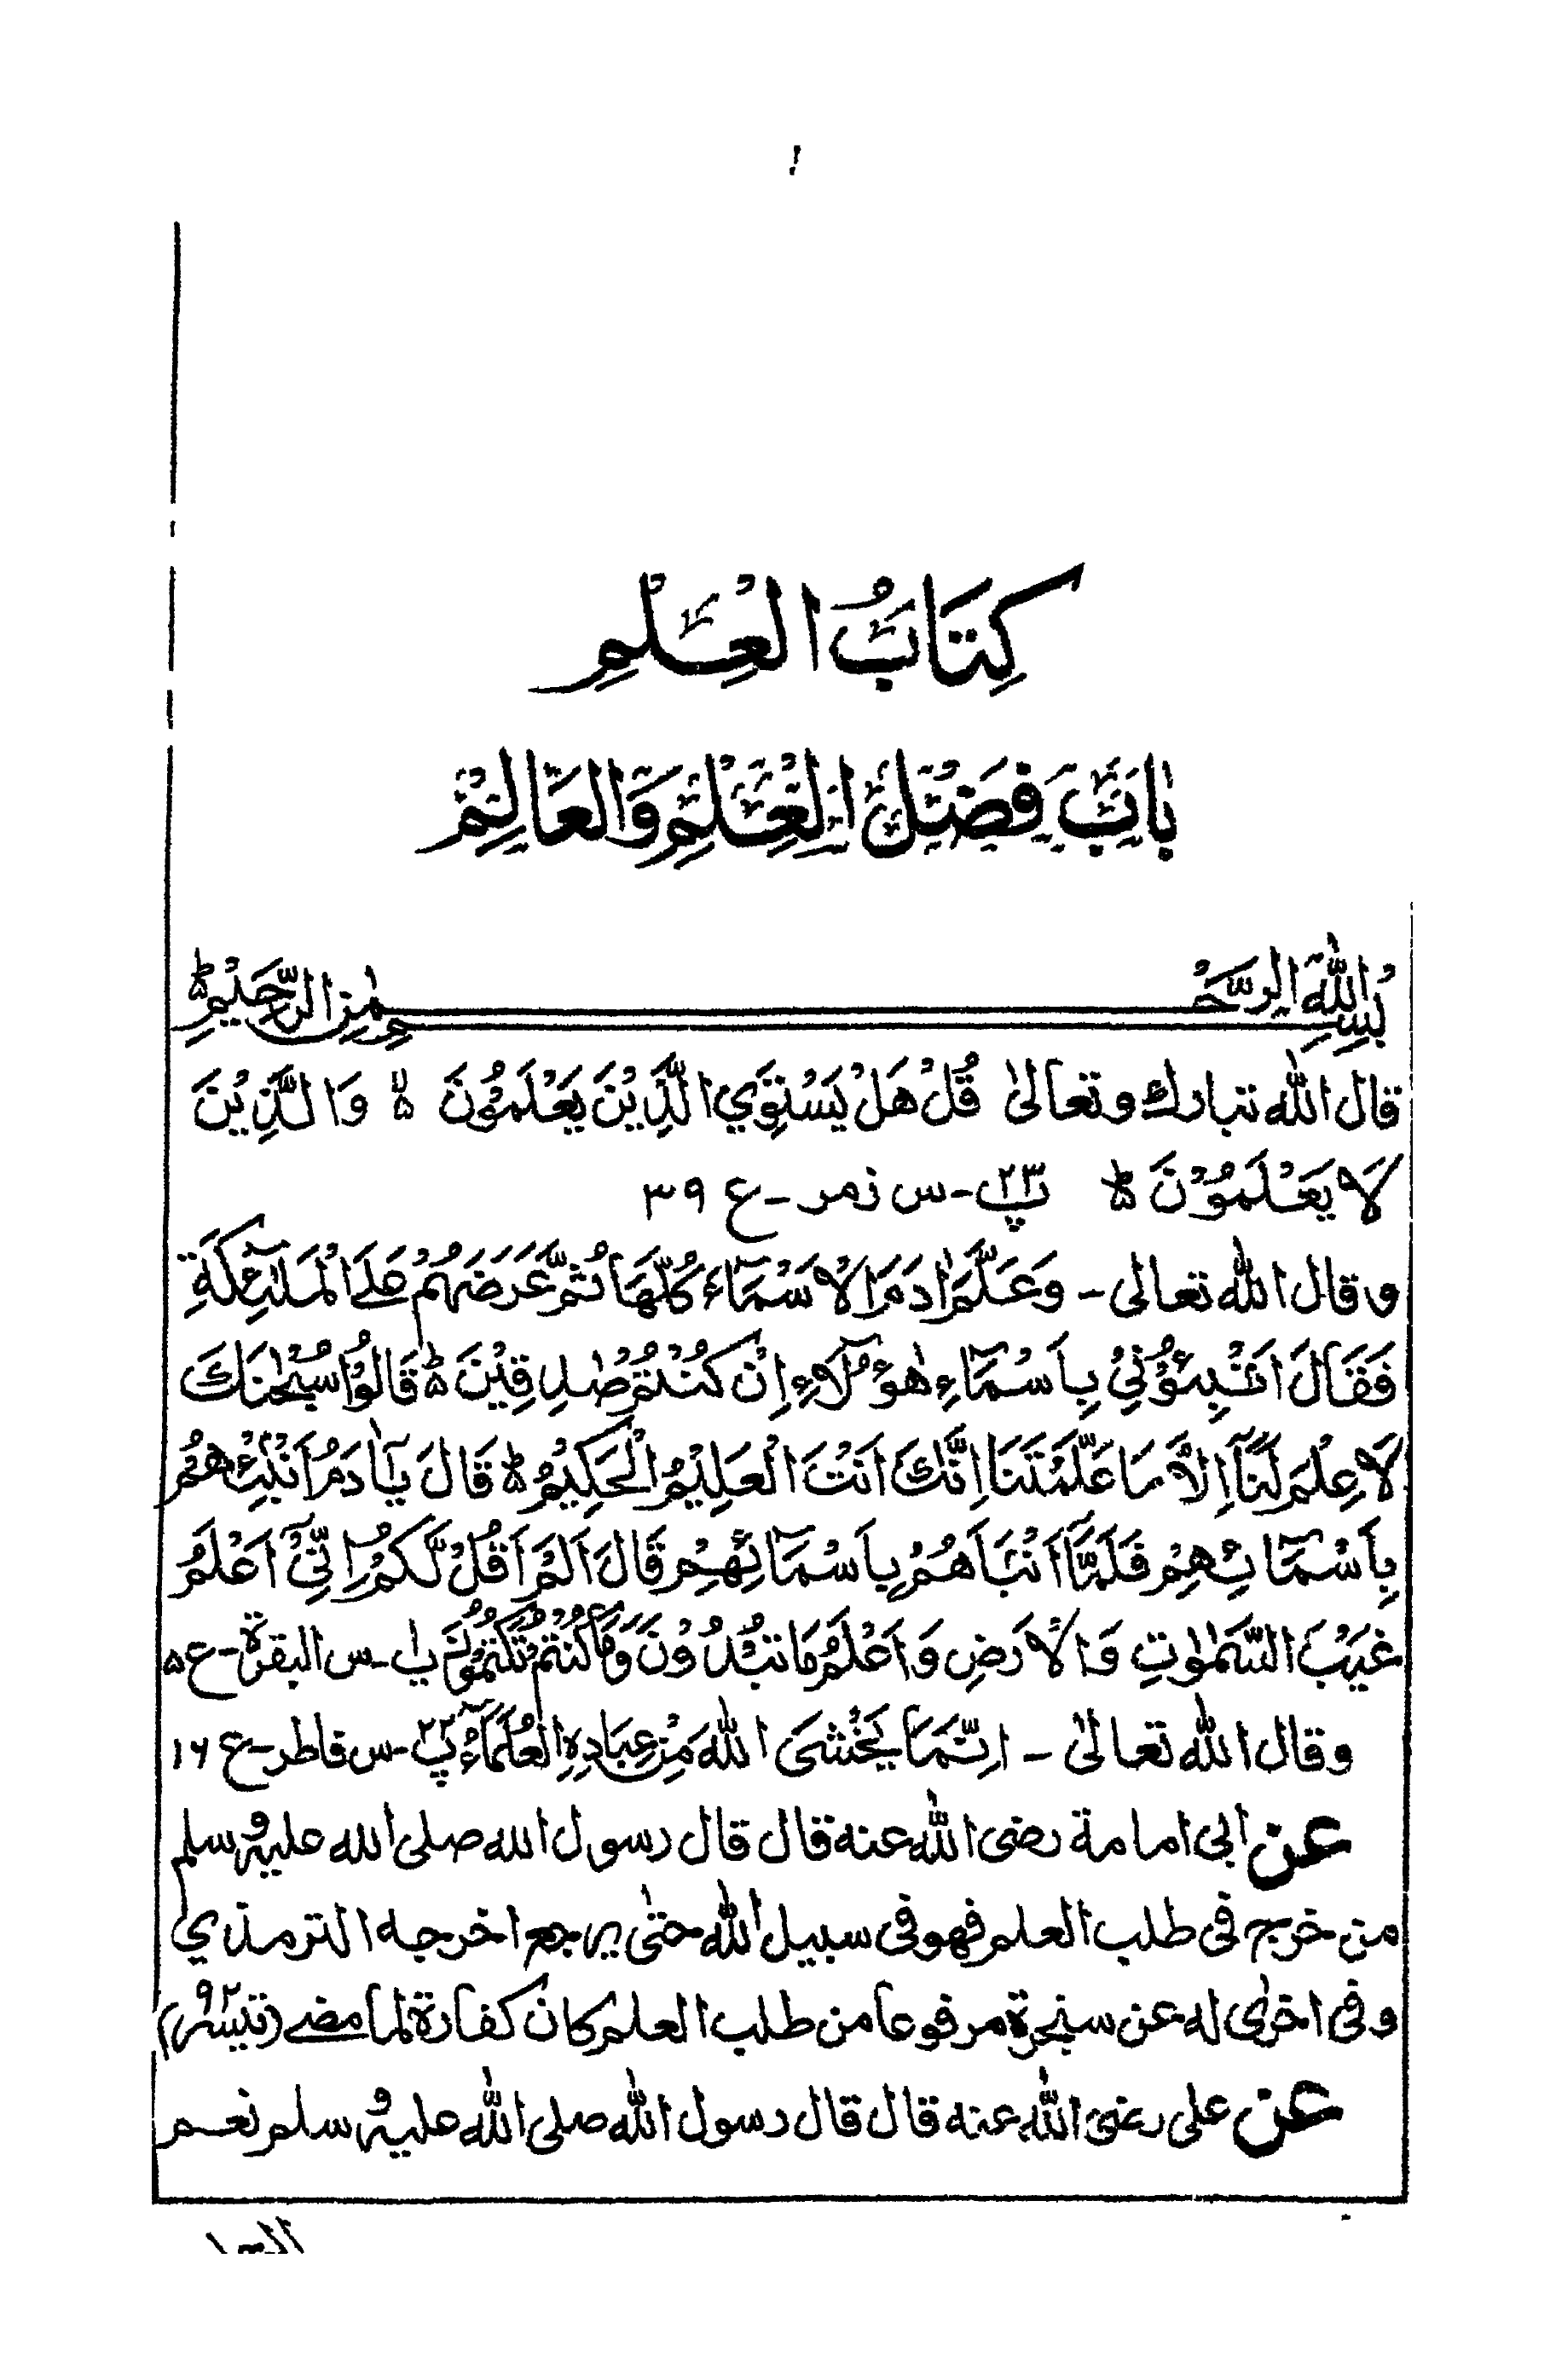 كِتَابُ الْعِلْمِ
بَابُ فَضْلِ الْعِلْمِ وَالْعَالِمِ
بِسْمِ اللّٰهِ الرَّحْمٰنِ الرَّحِيْمِ ط
قال اللّٰه تبارك وتعالىٰ قُلْ هَلْ يَسْتَوِي الَّذِيْنَ يَعْلَمُوْنَ لا وَالَّذِيْنَ
لَا يَعْلَمُوْنَ ط پ ٢٣ - س زمر - ع ٣٩
وقال اللّٰه تعالى - وَعَلَّمَ اٰدَمَ الْاَسْمَآءَ كُلَّهَا ثُمَّ عَرَضَهُمْ عَلَے الْمَلٰٓئِكَةِ
فَقَالَ اَنْۢبِـُٔوْنِيْ بِاَسْمَآءِ هٰٓؤُلَآءِ اِنْ كُنْتُمْ صٰدِقِيْنَ ط قَالُوْا سُبْحٰنَكَ
لَا عِلْمَ لَنَآ اِلَّا مَا عَلَّمْتَنَا اِنَّكَ اَنْتَ الْعَلِيْمُ الْحَكِيْمُ ط قَالَ يٰٓاٰدَمُ اَنْۢبِئْهُمْ
بِاَسْمَآئِهِمْ فَلَمَّآ اَنْۢبَاَهُمْ بِاَسْمَآئِهِمْ قَالَ اَلَمْ اَقُلْ لَّكُمْ اِنِّيْٓ اَعْلَمُ
غَيْبَ السَّمٰوٰتِ وَالْاَرْضِ وَاَعْلَمُ مَا تُبْدُوْنَ وَمَا كُنْتُمْ تَكْتُمُوْنَ پ ١ - س البقرة - ع ٥
وقال اللّٰه تعالىٰ - اِنَّمَا يَخْشَى اللّٰهَ مِنْ عِبَادِهِ الْعُلَمَآءُ پ ٢٢ - س فاطر - ع ١٦
عن ابى امامة رضى اللّٰه عنه قال قال رسول الله صلى الله عليه وسلم
من خرج فى طلب العلم فهو فى سبيل اللّٰه حتىٰ يرجع اخرجه الترمذي
وفى اخرىٰ له عن سنجرة مرفوعا من طلب العلم كان كفارة لما مضے (تيسر ٩٢)
عن على رضى اللّٰه عنه قال قال رسول اللّٰه صلى اللّٰه عليه وسلم نعم